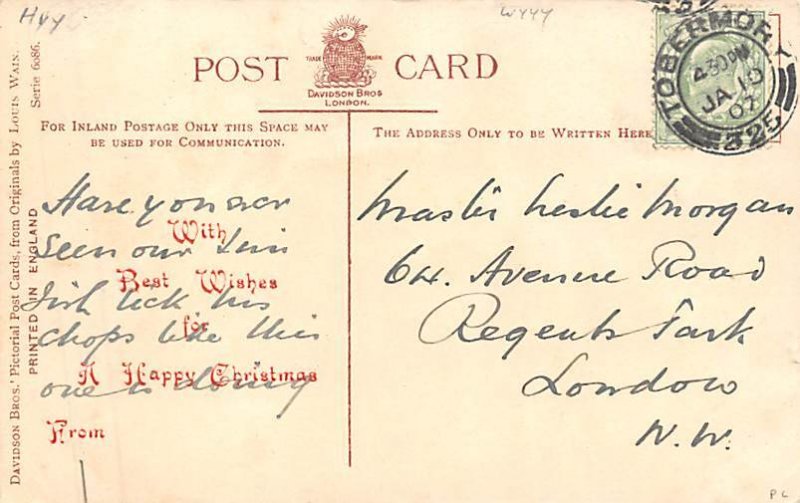 Hyy
wyyy
POST CARD
TRADE MARK
DAVIDSON BROS
LONDON.
TOBERMORY
4.30 PM
JA 10
07
325
FOR INLAND POSTAGE ONLY THIS SPACE MAY
BE USED FOR COMMUNICATION.
THE ADDRESS ONLY TO BE WRITTEN HERE
DAVIDSON BROS.' Pictorial Post Cards, from Originals by LOUIS WAIN.
Serie 6086.
PRINTED IN ENGLAND
Have you ever
seen our
lick his
chops like this
one is doing
With
Best Wishes
for
A Happy Christmas
From
Master Leslie Morgan
64. Avenue Road
Regents Park
London
N.W.
PL